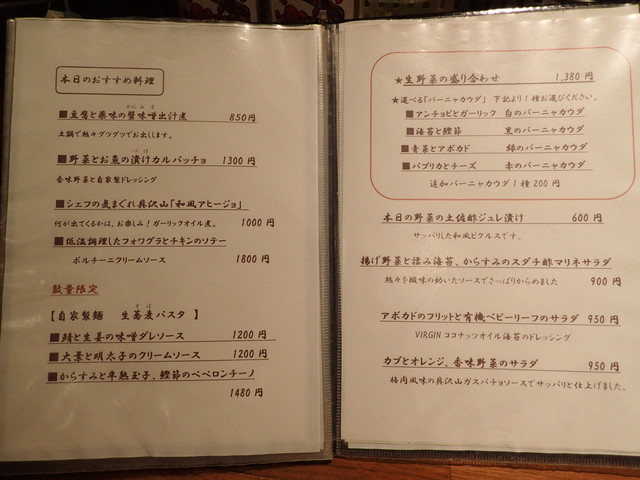 本日のおすすめ料理
かにみそ
■豆腐と薬味の蟹味噌出汁煮 850円
土鍋で熱々グツグツでお出しします。
づけ
■野菜とお魚の漬けカルパッチョ 1300円
香味野菜と自家製ドレッシング
■シェフの気まぐれ具沢山「和風アヒージョ」
何が出てくるかは、お楽しみ！ガーリックオイル煮。 1000円
■低温調理したフォワグラとチキンのソテー
ポルチーニクリームソース 1800円
数量限定
そば
【自家製麺 生蕎麦パスタ 】
■鯖と生姜の味噌ダレソース 1200円
■大葉と明太子のクリームソース 1200円
■からすみと半熟玉子、鰹節のペペロンチーノ
1480円
★生野菜の盛り合わせ 1,380円
★選べる「バーニャカウダ」 下記より1種お選びください。
■アンチョビとガーリック 白のバーニャカウダ
■海苔と鰹節 黒のバーニャカウダ
■青菜とアボカド 緑のバーニャカウダ
■パプリカとチーズ 赤のバーニャカウダ
追加バーニャカウダ1種200円
本日の野菜の土佐酢ジュレ漬け 600円
サッパリした和風ピクルスです。
揚げ野菜と揉み海苔、からすみのスダチ酢マリネサラダ
熱々を酸味の効いたソースでさっぱりからめました 900円
アボカドのフリットと有機ベビーリーフのサラダ 950円
VIRGINココナッツオイル海苔のドレッシング
カブとオレンジ、香味野菜のサラダ 950円
梅肉風味の具沢山ガスパチョソースでサッパリと仕上げました。